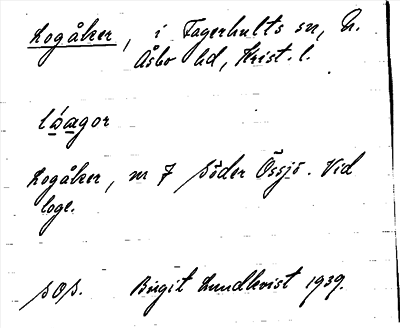 Logåker, i Fagerhults sn, N.
Åsbo hd, Krist. l.
Logåker, nr 7 Söder Össjö. Vid
loge.
SOS. Birgit Lundkvist 1939.